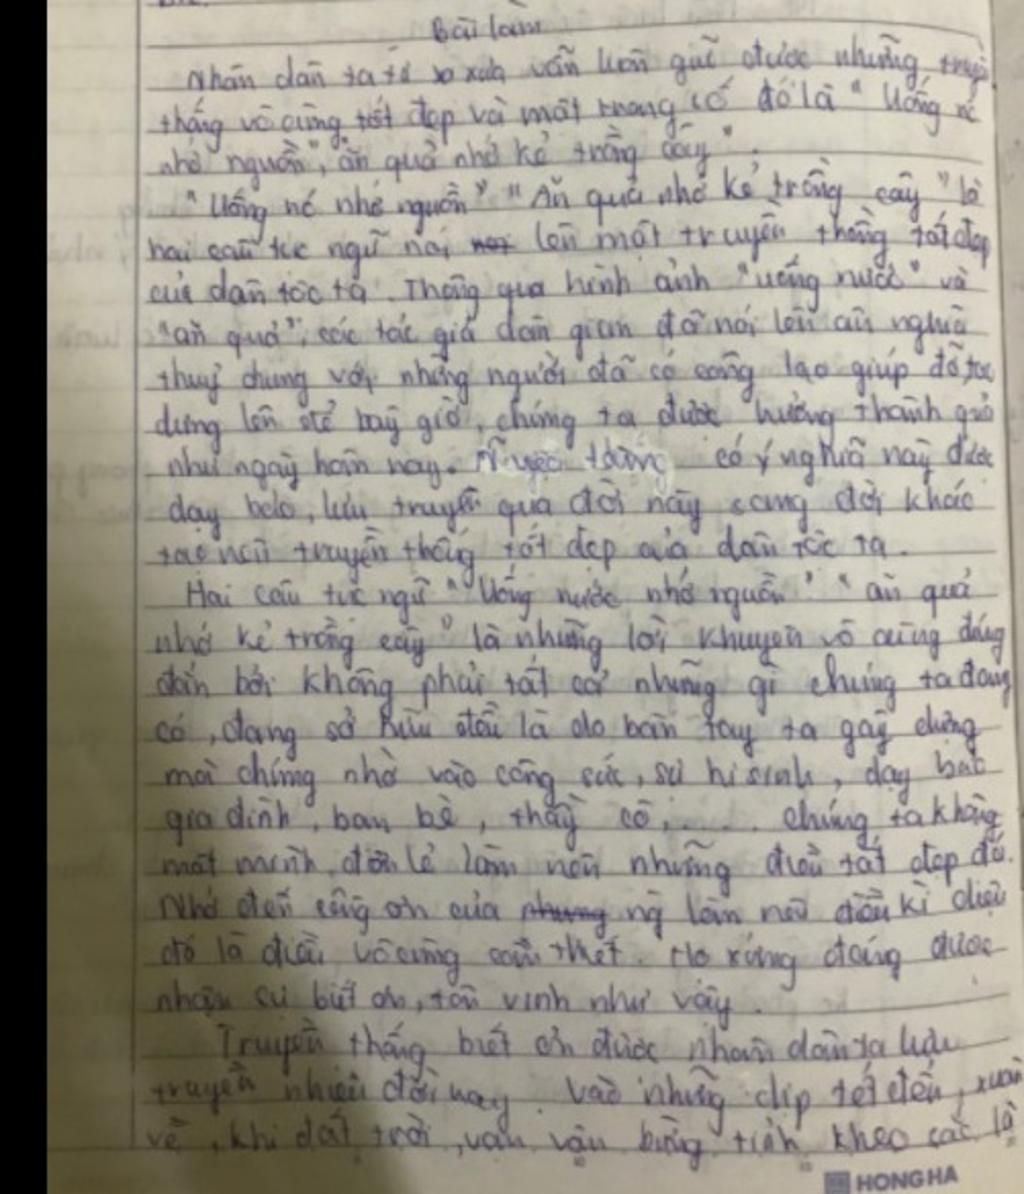 Bài làm
Nhân dân ta từ xa xưa vẫn luôn giữ được những truyền
thống vô cùng tốt đẹp và một trong số đó là "Uống nc
nhớ nguồn", ăn quả nhớ kẻ trồng cây".
"Uống nc nhớ nguồn" "Ăn quả nhớ kẻ trồng cây" là
hai câu tục ngữ nói lên một truyền thống tốt đẹp
của dân tộc ta. Thông qua hình ảnh "uống nước" và
"ăn quả", các tác giả dân gian đã nói lên ân nghĩa
thuỷ chung với những người đã có công lao giúp đỡ, tạo
dựng lên để bây giờ, chúng ta được hưởng thành quả
như ngày hôm nay. có ý nghĩa này được
dạy bảo, lưu truyền qua đời này sang đời khác
tạo nên truyền thống tốt đẹp của dân tộc ta.
Hai câu tục ngữ "Uống nước nhớ nguồn" "ăn quả
nhớ kẻ trồng cây" là những lời khuyên vô cùng đúng
đắn bởi không phải tất cả những gì chúng ta đang
có, đang sở hữu đều là do bàn tay ta gây dựng
mà chính nhờ vào công sức, sự hi sinh, dạy bảo
gia đình, bạn bè, thầy cô,..... chúng ta không
một mình, đơn lẻ làm nên những điều tốt đẹp đó.
Nhớ đến công ơn của ng làm nên điều kì diệu
đó là điều vô cùng cần thiết. Họ xứng đáng được
nhận sự biết ơn, tôn vinh như vậy.
Truyền thống biết ơn được nhân dân ta lưu
truyền nhiều đời nay. Vào những dịp tết đến, xuân
về, khi đất trời, vạn vật bừng tỉnh, các
HONG HA